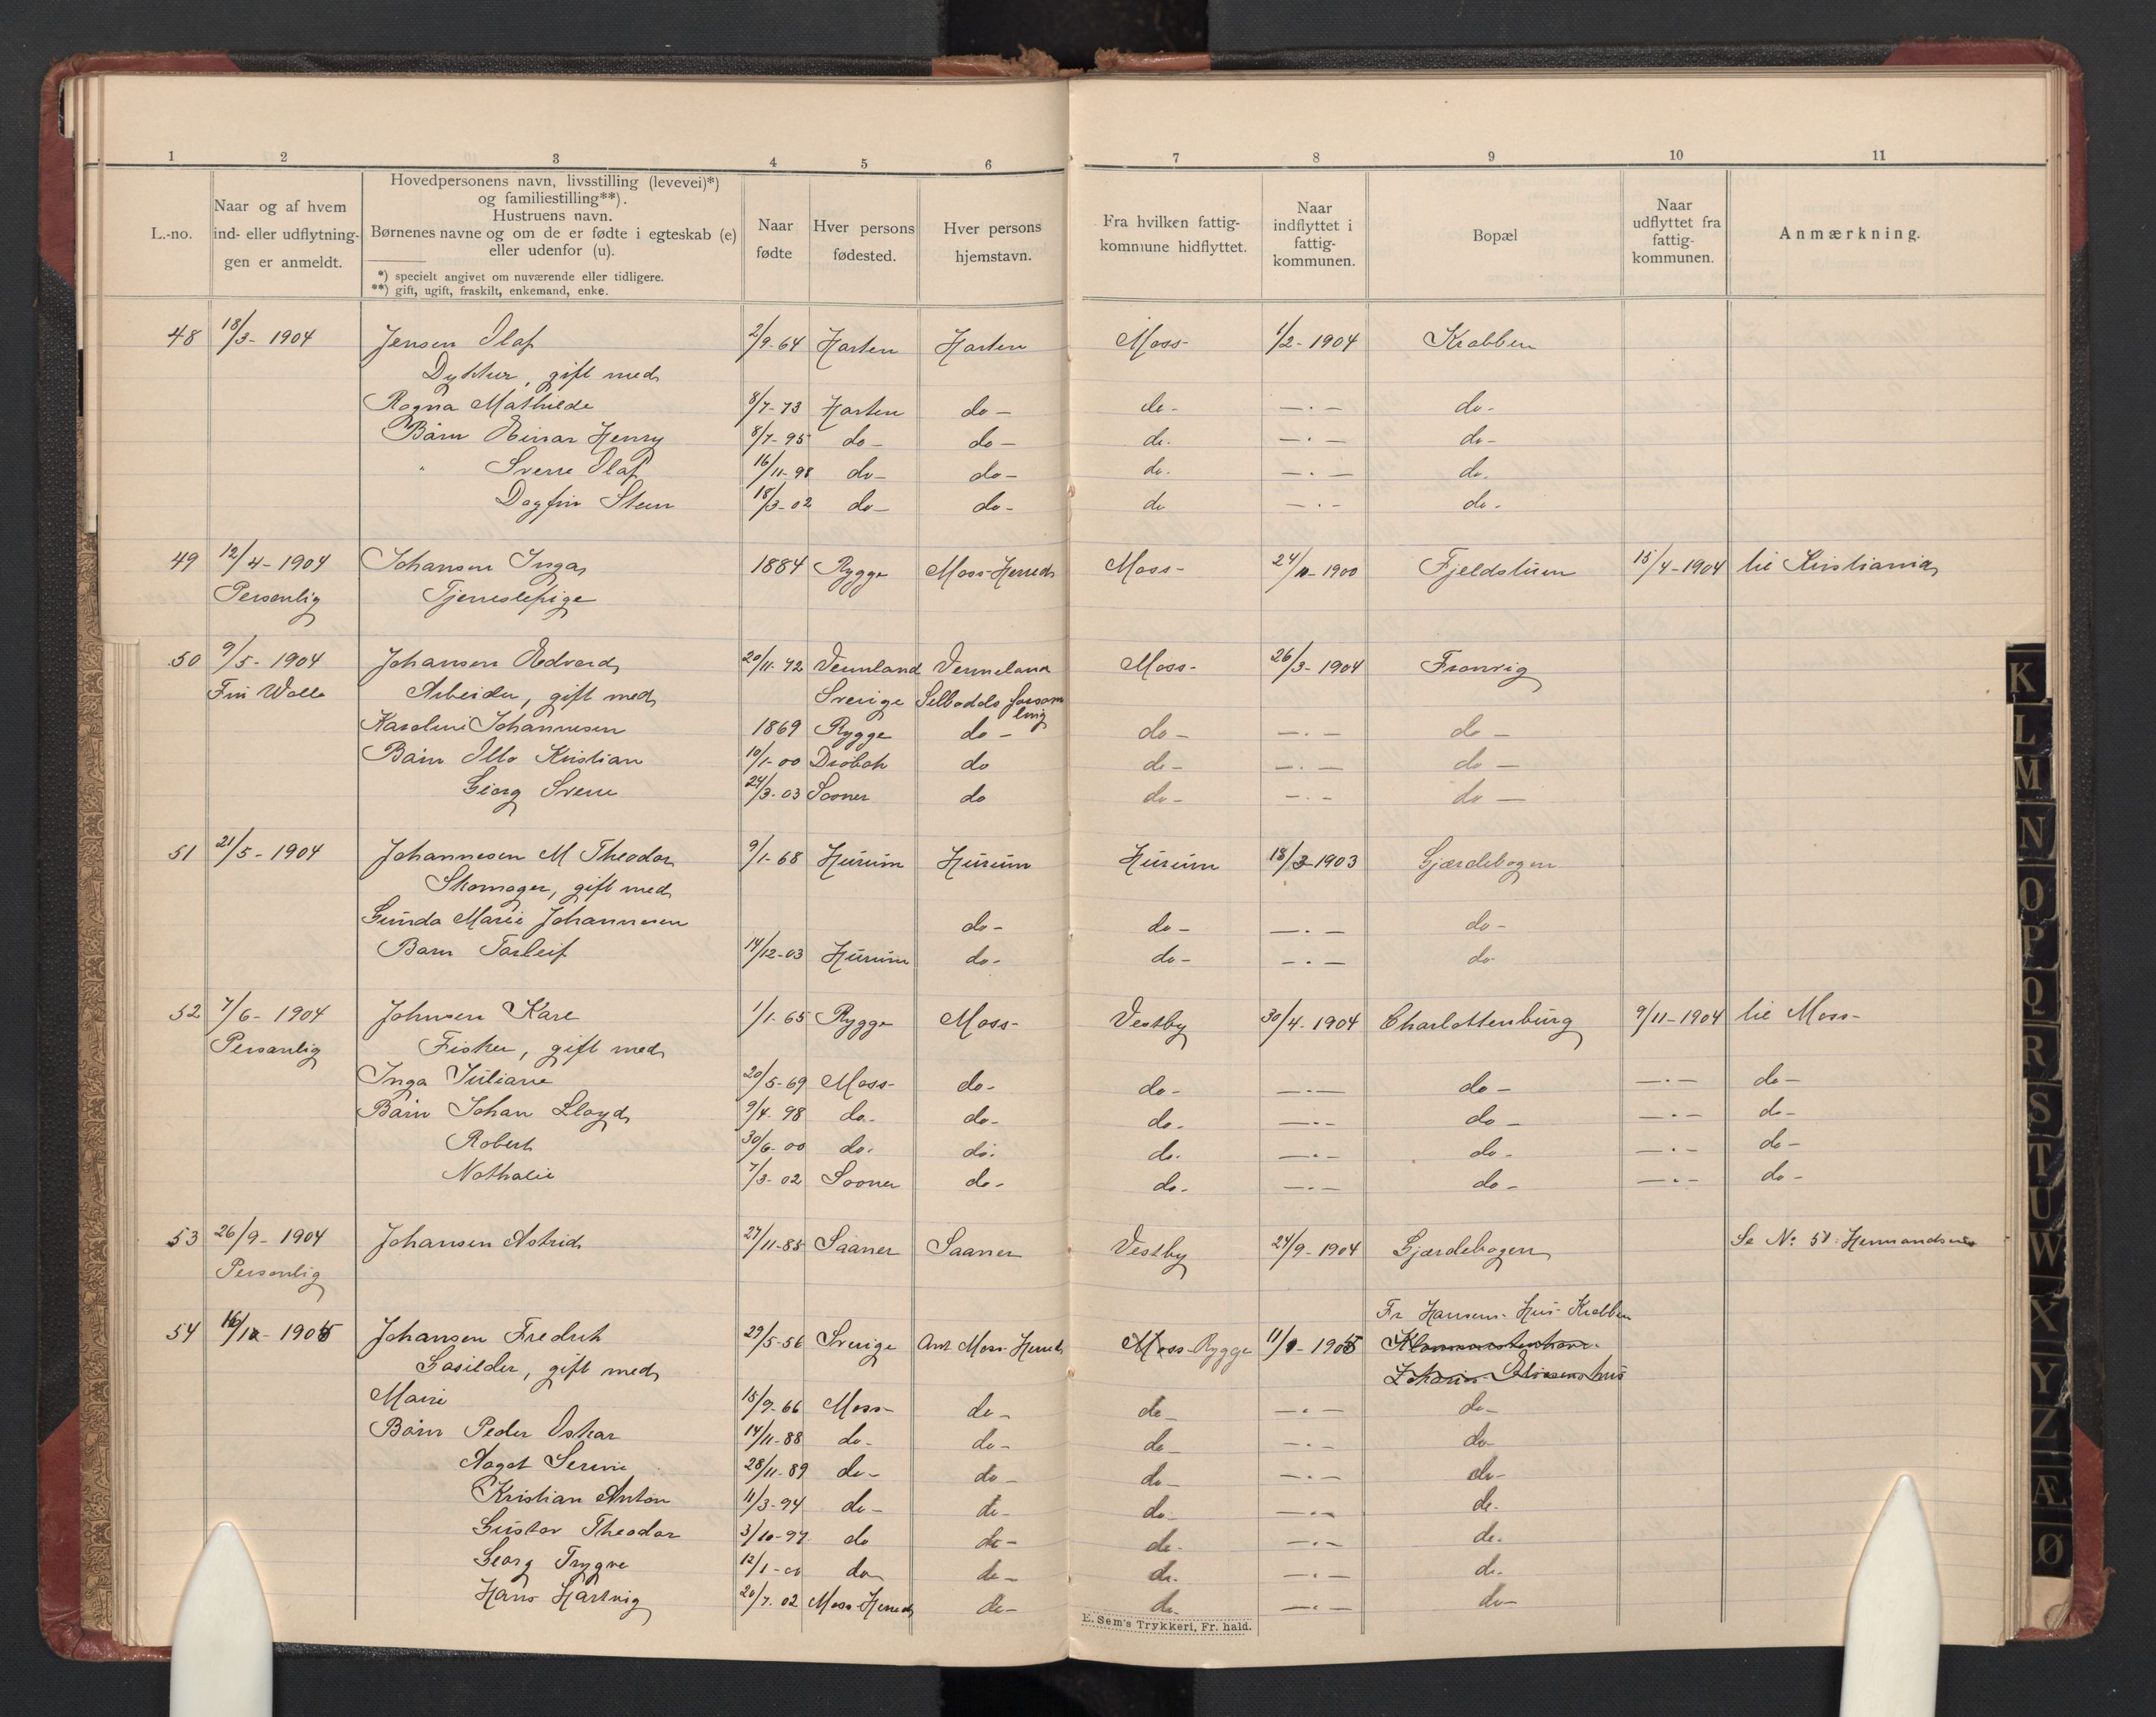 1 2 3 4 5 6 7 8 9 10 11
L.-no.
Naar og af hvem
ind- eller udflytnin-
gen er anmeldt.
Hovedpersonens navn, livsstilling (levevei)*)
og familiestilling**).
Hustruens navn.
Børnenes navne og om de er fødte i egteskab (e)
eller udenfor (u).
*) specielt angivet om nuværende eller tidligere.
**) gift, ugift, fraskilt, enkemand, enke.
Naar
fødte
Hver persons
fødested.
Hver persons
hjemstavn.
Fra hvilken fattig-
kommune hidflyttet.
Naar
indflyttet i
fattig-
kommunen.
Bopæl
Naar
udflyttet fra
fattig-
kommunen.
Anmærkning.
48 18/3- 1904 Jensen Olaf 2/9-64 Horten Horten Moss- 1/2-1904 Krabben
Dykker, gift med
Ragna Mathilde 8/7-73 Horten do- do- -.- do-
Barn Einar Henry 8/7-95 do- do- do- -.- do-
" Sverre Olaf 16/11-98 do- do- do- -.- do-
Dagfin Steen 18/3-02 do- do- do -.- do-
49 12/4-1904 Johansen Inga 1884 Rygge Moss-Herred Moss- 24/10-1900 Fjeldstuen 15/4-1904 til Kristiania
Personlig Tjenestepige
50 9/5-1904 Johansen Edvard 20/11-72 Vermland Vermeland Moss- 26/3-1904 Framvig
Fru Wolle Arbeider, gift med Sverige Selbodds forsam
ling
Karoline Johannesen 1869 Rygge do- do- -.- do-
Barn Otto Kristian 10/1-00 Drøbak do do- -.- do-
Georg Sverre 24/3-03 Sooner do do- -.- do-
51 21/5-1904 Johannesen M Theodor 9/1-68 Hurum Hurum Hurum 18/3-1903 Gjærdebogen
Skomager, gift med
Gunda Marie Johannesen do- do- -.- do-
Barn Torleif 14/12-03 Hurum do- do- -.- do-
52 7/6-1904 Johnsen Karl 1/1-65 Rygge Moss- Vestby 30/4-1904 Charlottenburg 9/11-1904 til Moss-
Personlig Fisker, gift med
Inga Juliane 20/5-69 Moss- do- do- -.- do- -.- do-
Barn Johan Lloyd 9/4-98 do- do- do- -.- do- -.- do-
Robert 30/6-00 do- do- do- -.- do- -.- do-
Nathalie 7/3-02 Sooner do- do- -.- do- -.- do-
53 26/9-1904 Johansen Astrid 27/11-85 Saaner Saaner Vestby 24/9-1904 Gjærdebogen Se No 51 Hermandsen
Personlig
Fr Hansens Hus Krabben
54 16/12-1905 Johansen Fredrik 29/5-56 Sverige Ant Moss-Herred Moss-Rygge 11/1-1905
Gasilder, gift med Johan Olsens hus
Marie 15/9-66 Moss- do- do- -.- do-
Barn Peder Oskar 14/11-88 do- do- do- -.- do-
Aagot Serine 28/11-89 do- do- do- -.- do-
Kristian Anton 11/3-94 do- do- do- -.- do-
Gustav Theodor 3/10-97 do do- do- -.- do-
Georg Trygve 12/1-00 do do- do- -.- do-
Hans Hartvig 20/7-02 Moss-Herred do- do- -.- do-
E. Sem's Trykkeri, Fr. hald.
K
L
M
N
O
P
Q
R
S
T
U
W
X
Y
Z
Æ
Ø